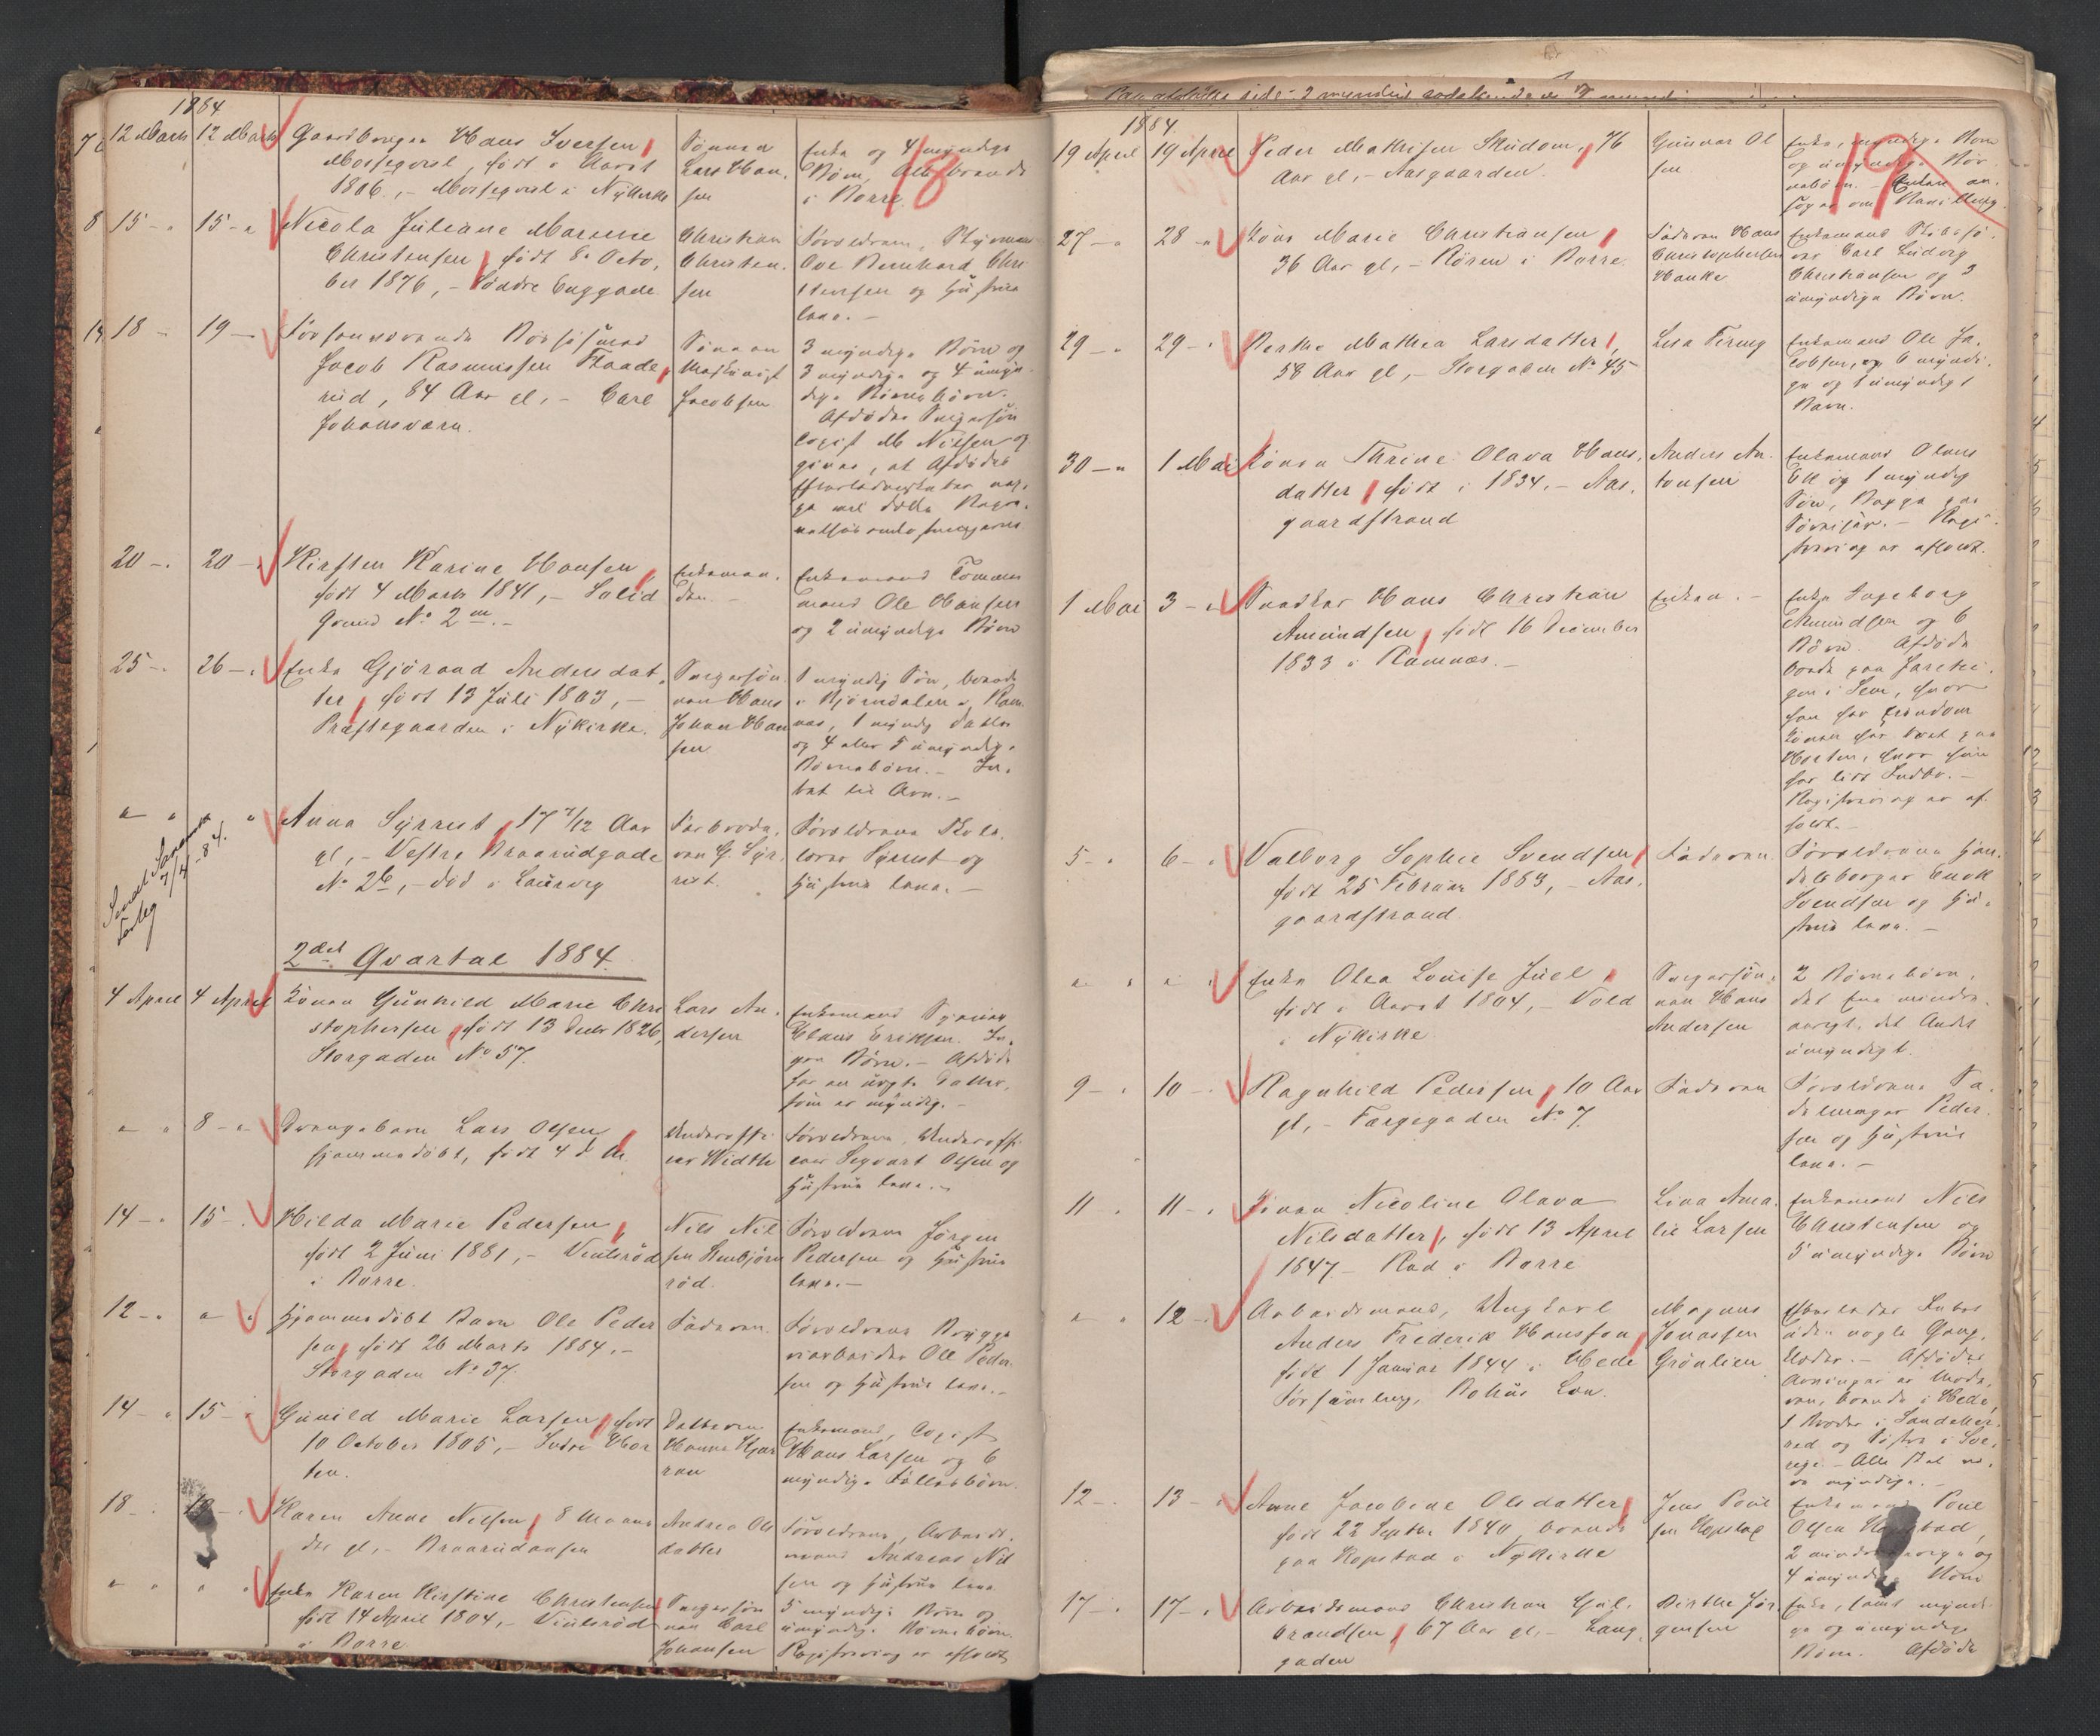 1884
12 Marts 12 Marts Gaardbruger Hans Iversen
født i Aaret
1806, i Nykirke
Sønnen
Lars Han-
sen
Enke og 4 myndige
Børn, Alle boende
i Borre.
18
8 15 - 15 - Nicola Juliane Marsene
Christensen, født 8 Octo-
ber 1876, - Søndre Enggade
Christian
Christen-
sen
Forældrene, Styrmand
Ove Bernhard Chri
stensen og Hustru
leve. -
18 - 19 - Forhenværende
Jacob Rasmussen Flaade-
rud, 84 Aar gl, - Carl
Johansværn.
Sønnen
Jacobsen
3 myndige Børn og
3 myndige og 4 umyn-
dige Børnebørn.
Afdødes Svigersøn
Logist M Nilsen og
giver, at Afdødes
20 - 20 - Kirsten Karine Hansen
født 4 Marts 1841, - Solid
Grund No 2
Enkeman-
den. -
Enkemand Tømmer
mand Ole Hansen
og 2 umyndige Børn
25 - 26 - Enke Gjørand Andersdat-
ter, født 13 Juli 1803, -
Præstegaarden i Nykirke.
Svigersøn-
nen Hans
Johan Han
sen
1 myndig Søn, boende
i Bjørndalen i Ram
næs, 1 myndig Datter
og 4 eller 5 umyndige
Børnebørn. - In-
tet til Arv. -
Anna Syrrist, 17 7/12 Aar
gl, - Vestre Braarudgade
No 26, - død i Laurvig
Farbrode-
ren G. Syr-
rist.
Forældrene Skole-
lærer Syrrist og
Hustru leve. -
7/4-84.
2det Qvartal 1884.
4 April 4 April Konen Gunhild Marie Chri
stophersen, født 13 Decbr 1826,
Storgaden No 57.
Lars An-
dersen
Enkemand
Claus Eriksen. In-
gen Børn. - Afdøde
har en uægte Datter,
som er myndig. -
8 - Drengebarn Lars Olsen
hjemmedøbt, født 4 d M.
Underoffi-
cer Width
Forældrene, Underoffi
cer Segvart Olsen og
Hustru leve. -
14 - 15 - Hilda Marie Pedersen,
født 2 Juni 1881, -
i Borre.
Nils Nil
sen Stenbjørn
rød.
Forældrene Jørgen
Pedersen og Hustru
leve. -
12 - Hjemmedøbt Barn Ole Peder
sen, født 26 Marts 1884. -
Storgaden No 37.
Faderen.
Forældrene Brygge
riarbeider Ole Peder-
sen og Hustru leve. -
14 - 15 - Gunild Marie Larsen, født
10 October 1805, - Indre Hor
ten.
Datteren
Hanna
Enkemand, Logist
Hans Larsen og 6
myndige Fællesbørn.
18 - Karen Anne Nilsen, 8 Maane
der gl, - Braarudaasen
Andrea Ols
datter
Forældrene, Arbeids-
mand Andreas Nil
sen og Hustru leve
Enke Karen Kirstine Christensen
født 14 April 1804, -
i Borre.
Svigersøn
nen Carl
Johansen
5 myndige Børn og
umyndige Børnebørn.
Registrering er afholdt
1884.
19 April 19 April Peder Mathisen Skudom, 76
Aar gl, - Aasgaarden.
Gunnar Ol
sen
Enke, myndige Børn
og umyndige Bør
nebørn. - Enken an-
søger om Bevilling.
19
27 - 28 - Kone Marie Christiansen
36 Aar gl, - i Borre.
Faderen Hans
Christophersen
Hanke
Enkemand
Carl Ludvig
Christiansen og 3
umyndige Børn.
29 - 29 - Berthe Mathea Larsdatter,
58 Aar gl, - Storgaden No 45
Lisa
Enkemand Ole Ja-
cobsen, og 6 myndi-
ge og 1 umyndigt
Barn.
30 - 1 Mai Konen Thrine Olava Hans-
datter, født i 1834. - Aas-
gaardstrand
Anders An-
tonsen
Enkemand Olaus
Ell og 1 myndig
Søn, Begge paa
Søreise. - Regi-
strering er afholdt.
1 Mai 3 - Snedker Hans Christian
Amundsen, født 16 December
1833 i Ramnæs. -
Enken. -
Enke Ingeborg
Amundsen og 6
Børn. Afdøde
boede paa
gen i Sem, hvor
han har Eiendom
Konen har boet paa
Horten, hvor hun
har lidt Indbo. -
Registrering er af-
holdt. -
5 - 6 - Valborg Sophie Svendsen,
født 25 Februar 1863, - Aas-
gaardstrand.
Faderen.
Forældrene Han-
delsborger Enok
Svendsen og Hu-
stru leve. -
Enke Olea Louise Juel,
født i Aaret 1804, - Vold
i Nykirke
Svigersøn-
nen Hans
Andersen
2 Børnebørn,
det Ene mindre-
aarigt, det Andet
umyndigt.
9 - 10 - Ragnhild Pedersen, 10 Aar
gl, - Fargegaden No 7.
Faderen
Forældrene Sa-
delmager Peder-
sen og Hustru
leve. -
11 - 11 - Konen Nicoline Olava
Nilsdatter, født 13 April
1847 - Rød i Borre
Lina Ama-
lie Larsen
Enkemand Nils
Christensen og
5 umyndige Børn
12 - Arbeidsmand, Ungkarl
Anders Frederik Hansson,
født 1 Januar 1844 i Hede
Forsamling, Bohus Len.
Magnus
Jonassen
Grønlien
Efterlader Intet
uden nogle Gang-
klæder. - Afdødes
Arvinger er Mode-
ren, boende i Hede,
1 Broder i Sandeher-
red og Søster i Sve-
rige. - Alle skal væ-
re myndige. -
12 - 13 - Anne Jacobine Olsdatter,
født 22 Septbr 1840, boende
paa Kopstad i Nykirke
Jens Poul
sen Kopstad
Enkemand Poul
Olsen Kopstad,
2 mindreaarige og
4 umyndige Børn
17 - 17 - Arbeidsmand Christian Gul-
brandsen, 67 Aar gl, - Lang-
gaden
Birthe Jør
gensen
Enke, samt myndi-
ge og umyndige
Børn. Afdøde